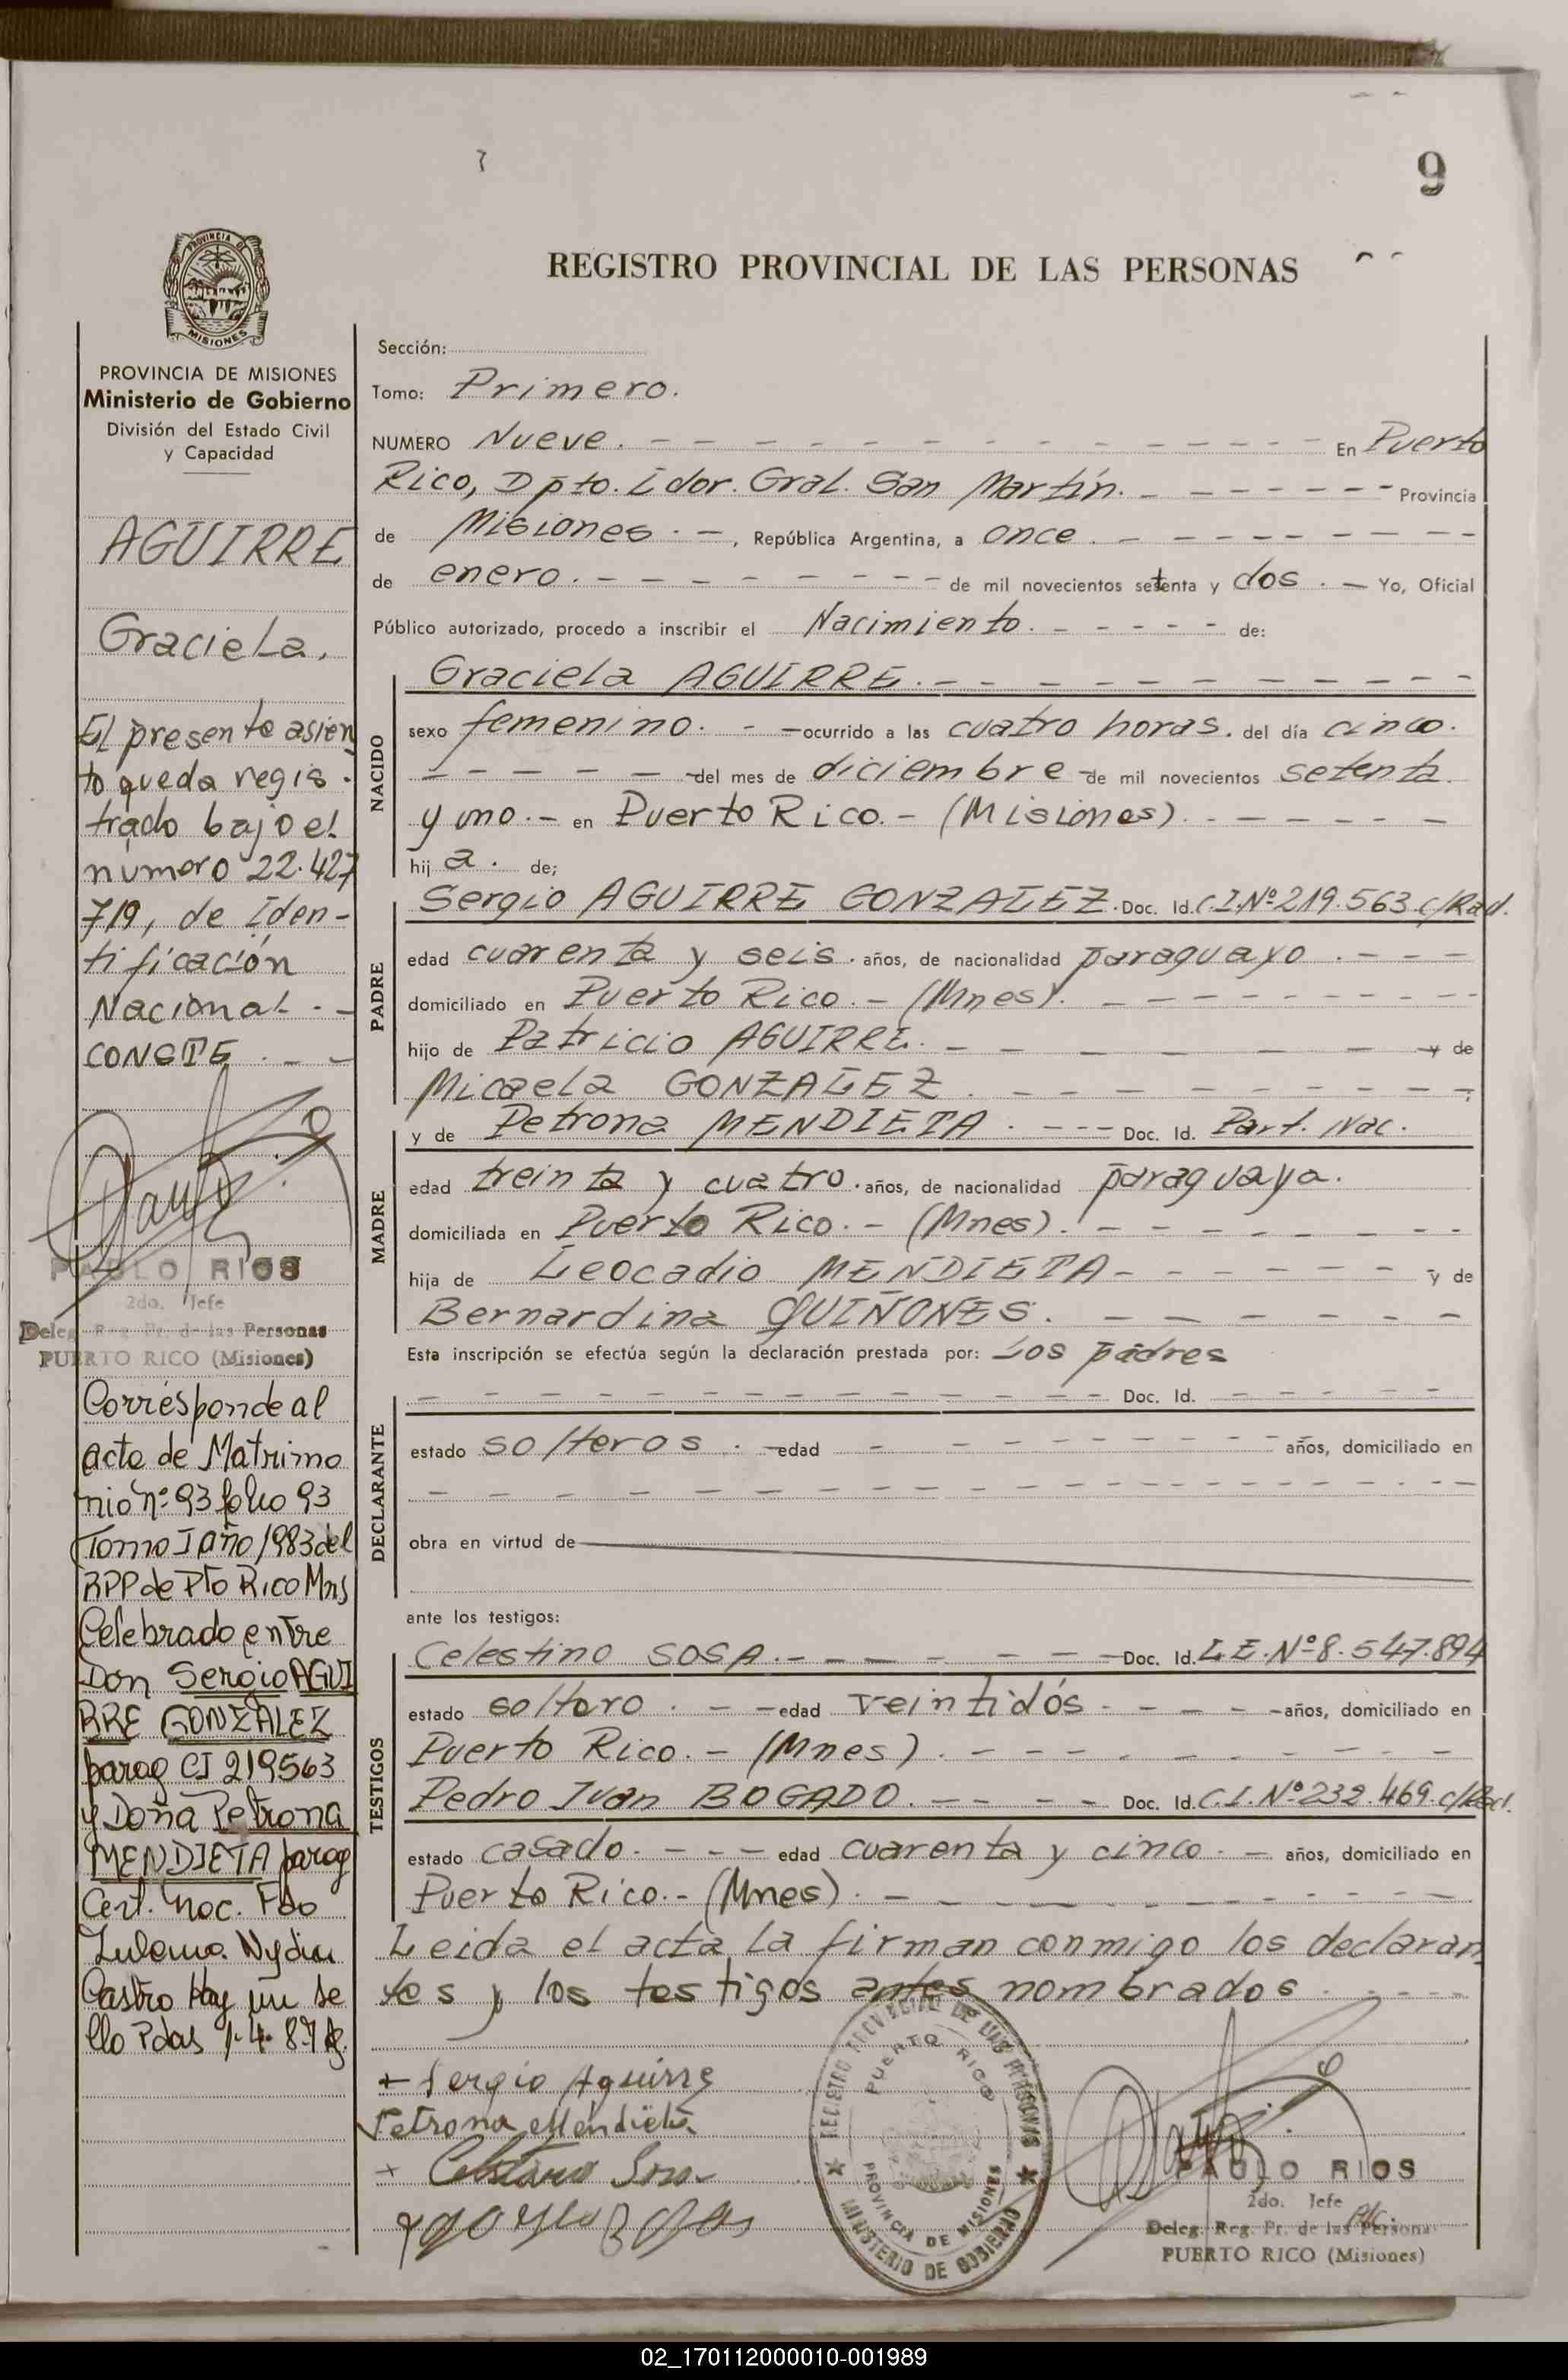 9
REGISTRO PROVINCIAL DE LAS PERSONAS
PROVINCIA DE
MISIONES
PROVINCIA DE MISIONES
Ministerio de Gobierno
División del Estado Civil
y Capacidad
AGUIRRE
Graciela.
El presente asien
to queda regis-
trado bajo el
número 22.427
719, de Iden-
tificación
Nacional. -
CONSTE. - -
PABLO RIOS
2do. Jefe
Deleg. Reg. Pr. de las Personas
PUERTO RICO (Misiones)
Corresponde al
acta de Matrimo
nio nº 93 folio 93
Tomo I año 1983 del
RPP de Pto Rico Mns
Celebrado entre
Don Sergio AGUI
RRE GONZALEZ
parag CI 219563
y Doña Petrona
MENDIETA parag
Cert. Nac. Fdo
Zulema Nydia
Castro Hay un se
llo Pdas 1-4-87
Sección:
Tomo: Primero.
NUMERO Nueve. - - - En Puerto
Rico, Dpto. Ldor. Gral. San Martín. - - - Provincia
de Misiones. -, República Argentina, a once. - - -
de enero. - - - de mil novecientos setenta y dos. - Yo, Oficial
Público autorizado, procedo a inscribir el Nacimiento. - - - de:
NACIDO
Graciela AGUIRRE. - - -
sexo femenino. - - ocurrido a las cuatro horas. del día cinco.
- - - del mes de diciembre de mil novecientos setenta
y uno. - en Puerto Rico. - (Misiones). - - -
hij a. de;
PADRE
Sergio AGUIRRE GONZALEZ. Doc. Id. C.I.Nº 219.563 c/Rad.
edad cuarenta y seis. años, de nacionalidad paraguayo. - - -
domiciliado en Puerto Rico. - (Mnes). - - -
hijo de Patricio AGUIRRE. - - - y de
Micaela GONZALEZ. - - -;
MADRE
y de Petrona MENDIETA. - - - Doc. Id. Part. Nac.
edad treinta y cuatro. años, de nacionalidad paraguaya.
domiciliada en Puerto Rico. - (Mnes). - - -
hija de Leocadio MENDIETA - - - y de
Bernardina QUIÑONES. - - -
Esta inscripción se efectúa según la declaración prestada por: Los padres
DECLARANTE
- - - Doc. Id. - - -
estado solteros. - edad - - - años, domiciliado en
- - -
obra en virtud de
ante los testigos:
TESTIGOS
Celestino SOSA. - - - Doc. Id. L.E.Nº 8.547.894
estado soltero. - - edad veintidós - - - años, domiciliado en
Puerto Rico. - (Mnes). - - -
Pedro Ivan BOGADO. - - - Doc. Id. C.I.Nº 232.469. c/Rad.
estado casado. - - - edad cuarenta y cinco. - años, domiciliado en
Puerto Rico. - (Mnes). - - -
Leida el acta la firman conmigo los declaran
tes y los testigos antes nombrados. - - -
+ Sergio Aguirre
Petrona Mendieta
+ Celestino Sosa
REGISTRO PROVINCIAL DE LAS PERSONAS
PUERTO RICO
PROVINCIA DE MISIONES
MINISTERIO DE GOBIERNO
PABLO RIOS
2do. Jefe
Deleg. Reg. Pr. de las Personas
PUERTO RICO (Misiones)
02_170112000010-001989